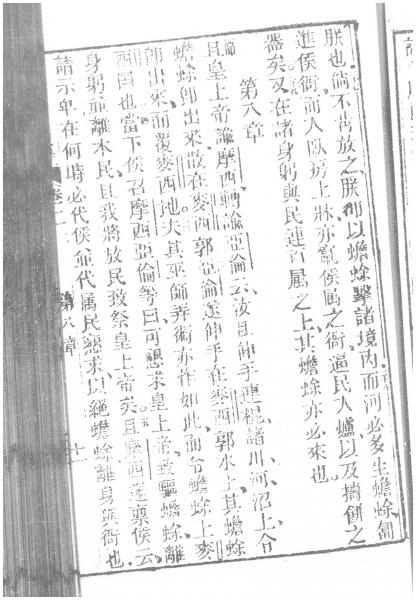 朕也倘不肯放之朕卽以蟾蜍擊諸境內而河必多生蟾蜍匍
進侯衙而入臥房上牀亦竄侯屬之衙逼民入爐以及摶餅之
器矣又在諸身躬與民連百屬之上其蟾蜍亦必來也
第八章
且皇上帝諭摩西轉諭亞倫云汝自伸手連棍諸川河沼上令
蟾蜍卽出來散在麥西郭亞倫遂伸手在麥西郭水上其蟾蜍
卽出來而覆麥西地夫其巫師弄術亦作如此而令蟾蜍上麥
西國也當下侯召摩西亞倫等曰可懇求皇上帝致驅蟾蜍離
身躬並離本民且我將放民致祭皇上帝矣且摩西遂稟侯云
請示卑在何時必代侯並代屬民懇求以絕蟾蜍離身與衙也
卷十二
第八章
十